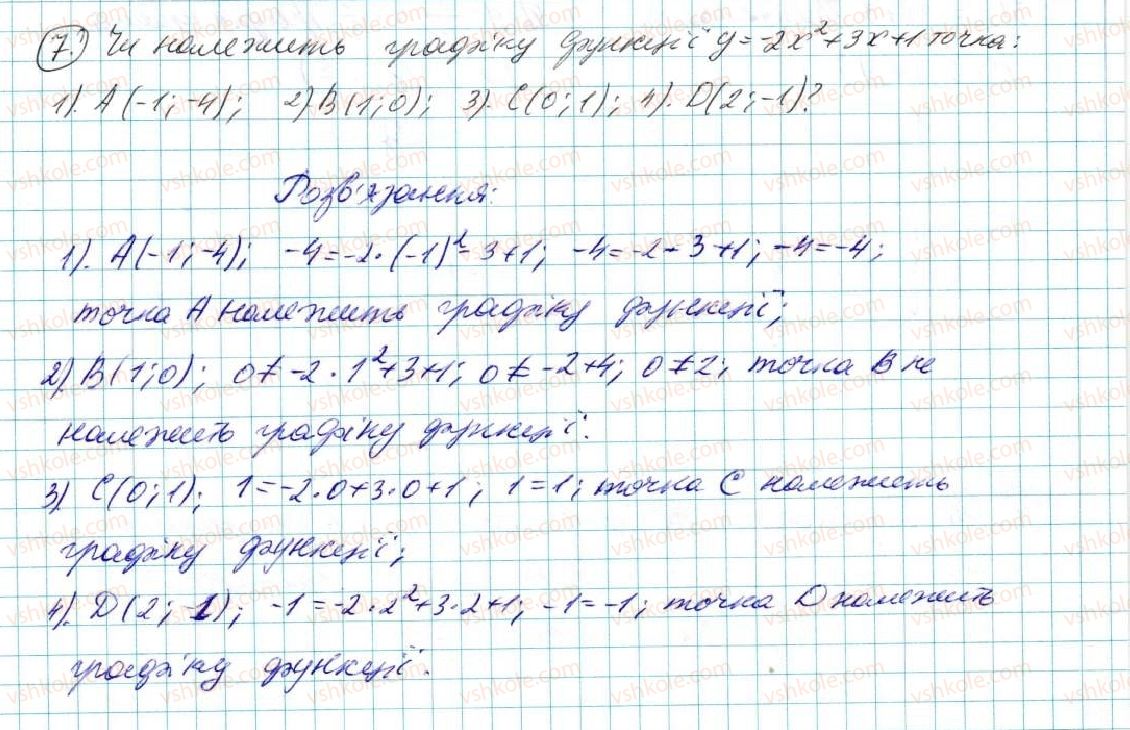 7. Чи належить графіку функції y=-2x²+3x+1 точка:
1). A(-1; -4); 2) B(1; 0); 3). C(0; 1); 4). D(2; -1)?
Розв'язання:
1). A(-1; -4); -4=-2·(-1)²-3+1; -4=-2-3+1; -4=-4;
точка A належить графіку функції;
2) B(1; 0); 0≠-2·1²+3+1; 0≠-2+4; 0≠2; точка B не
належить графіку функції.
3) C(0; 1); 1=-2·0+3·0+1; 1=1; точка C належить
графіку функції;
4). D(2; -1); -1=-2·2²+3·2+1; -1=-1; точка D належить
графіку функції.